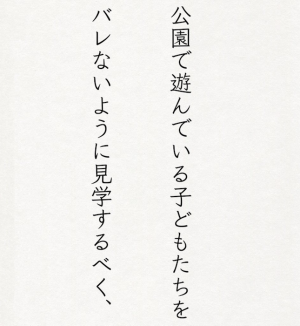 公園で遊んでいる子どもたちを
バレないように見学するべく、